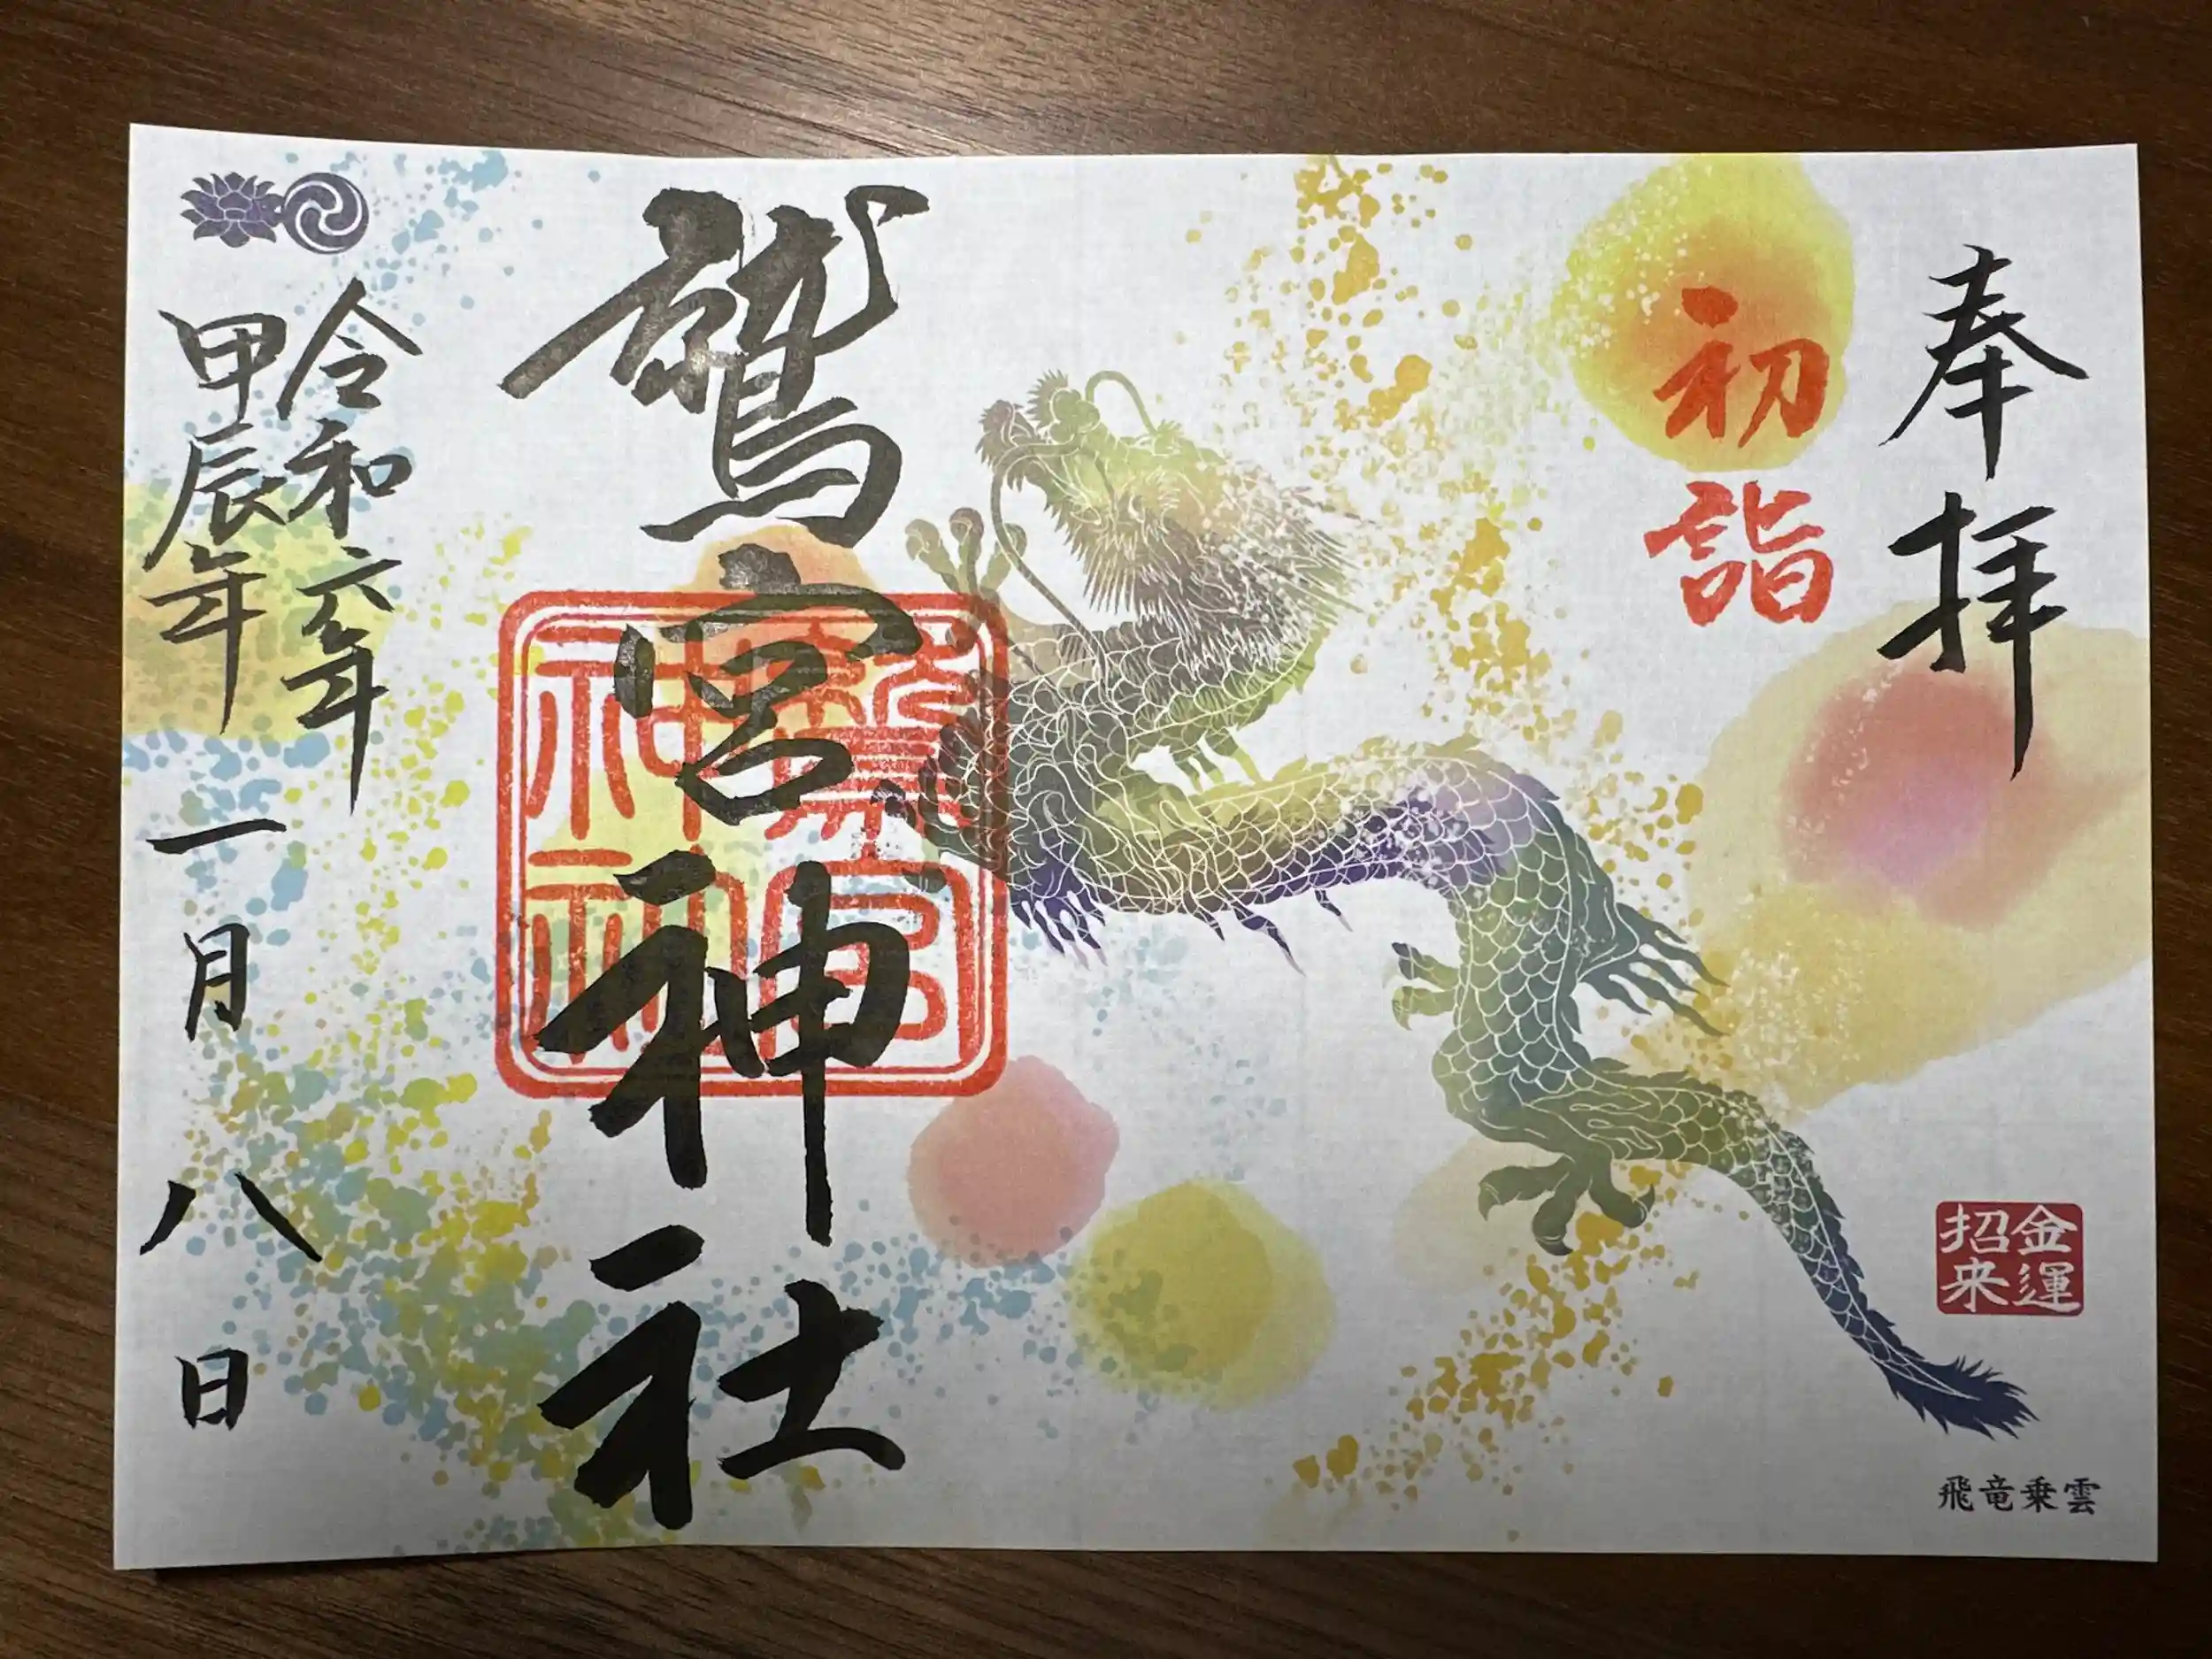 奉拝
初詣
金運
招来
飛竜乗雲
鷲宮神社
鷲宮
神社
令和六年
甲辰年
一月八日